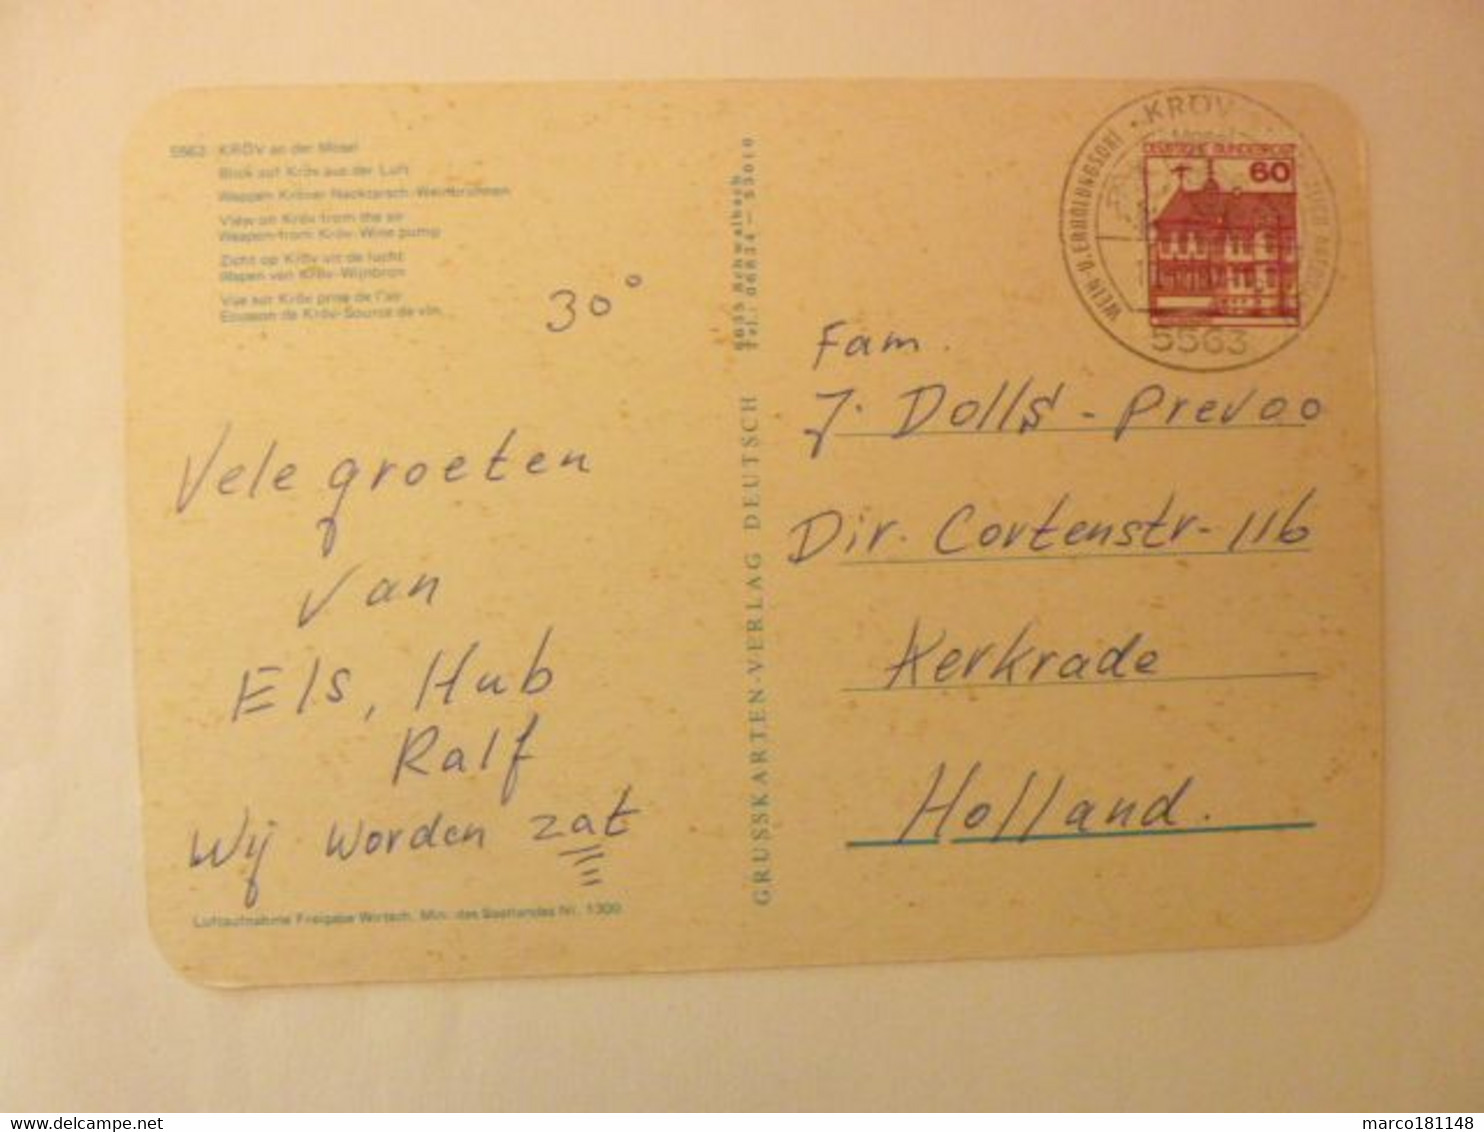 5563 KRÖV an der Mosel
Blick auf Kröv aus der Luft
Wappen Kröver Nacktarsch-Weinbrunnen
View on Kröv from the air
Weapen from Kröv-Wine pump
Zicht op Kröv uit de lucht
Wapen van Kröv-Wijnbron
Vue sur Kröv prise de l'air
Ecusson de Kröv-Source de vin
30°
Vele groeten
van
Els, Hub
Ralf
Wij worden zat
Luftaufnahme Freigabe Wirtsch. Min. des Saarlandes Nr. 1300
GRUSSKARTEN-VERLAG DEUTSCH
6635 Schwalbach
Tel.: 06834 - 53010
KRÖV
Mosel
WEIN- U. ERHOLUNGSORT
5563
DEUTSCHE BUNDESPOST
60
Fam.
J. Dolls - Prevoo
Dir. Cortenstr- 116
Kerkrade
Holland.
marco181148